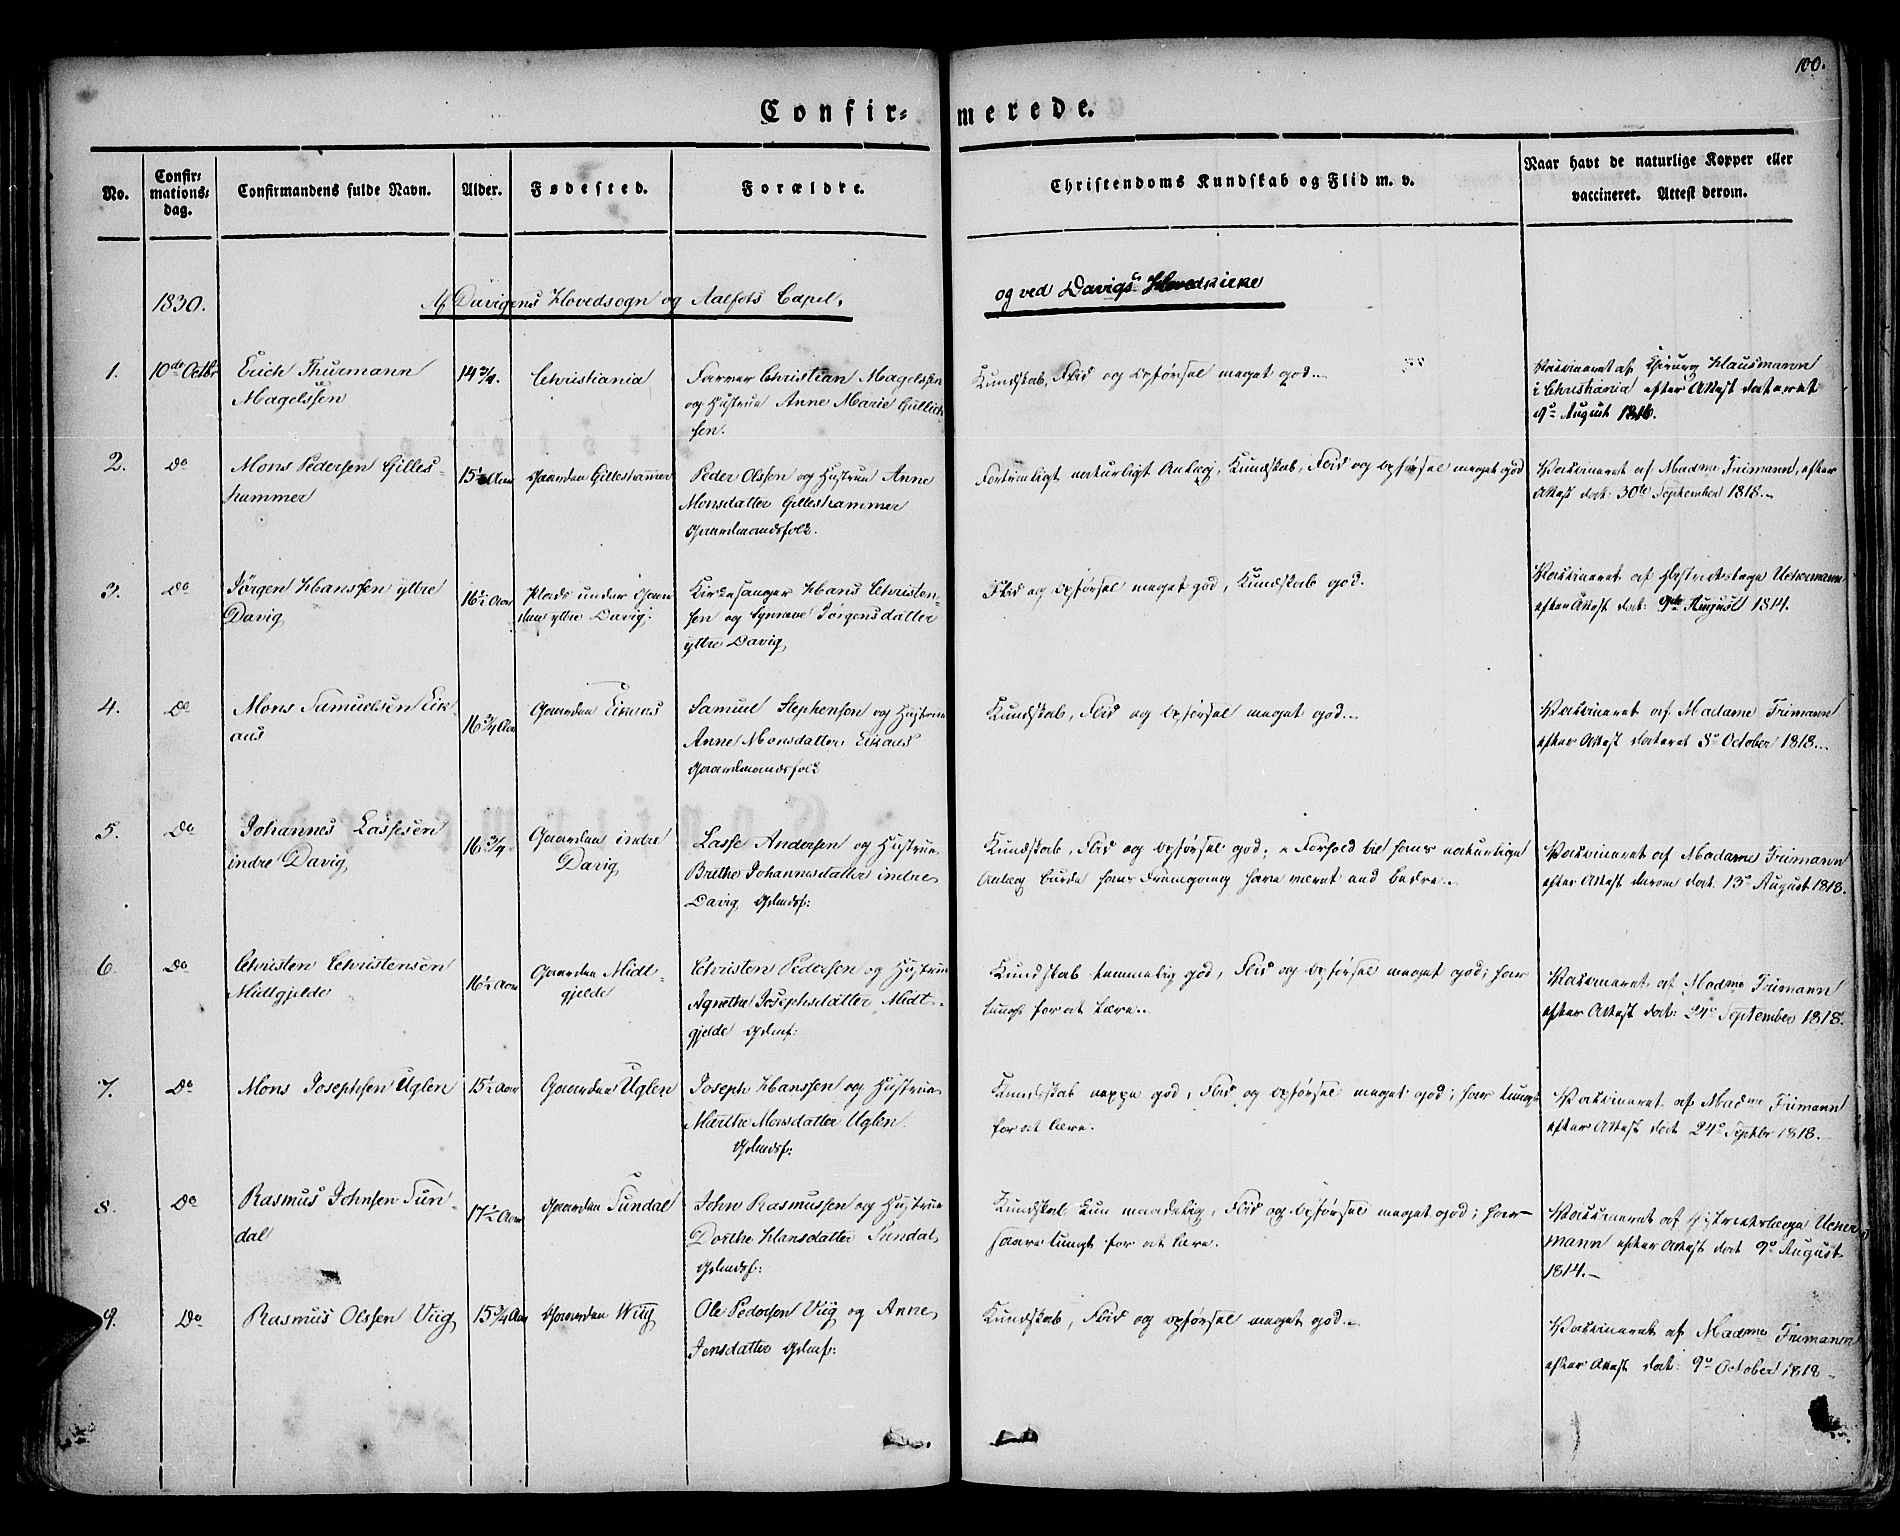 100.
Confir= merede.
No.
Confir=
mations=
dag.
Confirmandens fulde Navn.
Alder.
Fødested.
Forældre.
Christendoms Kundskab og Flid m. v.
Naar havt de naturlige Kopper eller
vaccineret. Attest derom.
1830.
Af Davigens Hovedsogn og Aalfots Capel,
og ved Davigs Hovedkirke
1.
10de Octbr
Erich Thurmann
Magelssen
14 3/4.
Christiania
Farver Christian Magelssen
og Hustrue Anne Marie Gullich
sen.
Kundskab, Flid og Opførsel meget god.
Vaccineret af Chirurg Klausmann
i Christiania efter Attest dateret
9de August 1816.
2.
Do
Mons Pedersen Gilles-
hammer
15 1/2 Aar
Gaarden Gilleshammer
Peder Olssen og Hustrue Anne
Monsdatter Gilleshammer
Gaardmandsfolk.
Fortrinligt naturligt Anlæg, Kundskab, Flid og Opførsel meget god
Vaccineret af Madme Frimann, efter
Attest dat: 30te September 1818.
3.
Do
Jørgen Hanssen yttre
Davig
16 1/2 Aar
Plads under Gaar
den yttre Davig.
Kirkesanger Hans Christen-
sen og Synneve Jørgensdatter
yttre Davig
Flid og Opførsel meget god, Kundskab god.
Vaccineret af Districtslæge Uchermann
efter Attest dat: 9de August 1814.
4.
Do
Mons Samuelsen Eik-
aus
16 3/4 Aar
Gaarden Eikaas
Samuel Stephensen og Hustrue
Anne Monsdatter Eikaas
Gaardmandsfolk
Kundskab, Flid og Opførsel meget god.
Vaccineret af Madame Frimann
efter Attest dateret 8de October 1818.
5.
Do
Johannes Lassesen
indre Davig
16 3/4
Gaarden indre
Davig
Lasse Andersen og Hustrue
Brithe Johannesdatter indre
Davig Gdmdsf:
Kundskab, Flid og Opførsel god; i Forhold til hans naturlige
Anlæg burde hans Fremgang have været end bedre.
Vaccineret af Madame Frimann
efter Attest derom dat: 13de August 1818.
6.
Do
Christen Christensen
Midtgjelde
16 1/2 Aar
Gaarden Midt-
gjelde
Christen Pedersen og Hustrue
Agnethe Josephsdatter Midt-
gjelde Gdmf:
Kundskab temmelig god, Flid og Opførsel meget god; har
tungt for at lære.
Vaccineret af Madme Frimann
efter Attest dat: 24de September 1818.
7.
Do
Mons Josephsen Uglen
15 1/2 Aar
Gaarden Uglen
Joseph Hanssen og Hustrue
Marthe Monsdatter Uglen.
Gdmdsf:
Kundskab neppe god, Flid og Opførsel meget god; har tungt
for at lære.
Vaccineret af Madme Frimann
efter Attest dat 24de Septbr 1818.
8.
Do
Rasmus Johnsen Sun-
dal
17 1/2 Aar
Gaarden Sundal
John Rasmussen og Hustrue
Dorthe Hansdatter Sundal
Gdmdsf:
Kundskab kun maadelig, Flid og Opførsel meget god; har
saare tungt for at lære.
Vaccineret af Districtslæge Ucher
mann efter Attest dat 9de August
1814.
9.
Do
Rasmus Olssen Viig
15 3/4 Aar
Gaarden Wiig
Ole Pedersen Viig og Anne
Jensdatter Gdmf:
Kundskab, Flid og Opførsel meget god.
Vaccineret af Madme Frimann
efter Attest dat: 9de October 1818